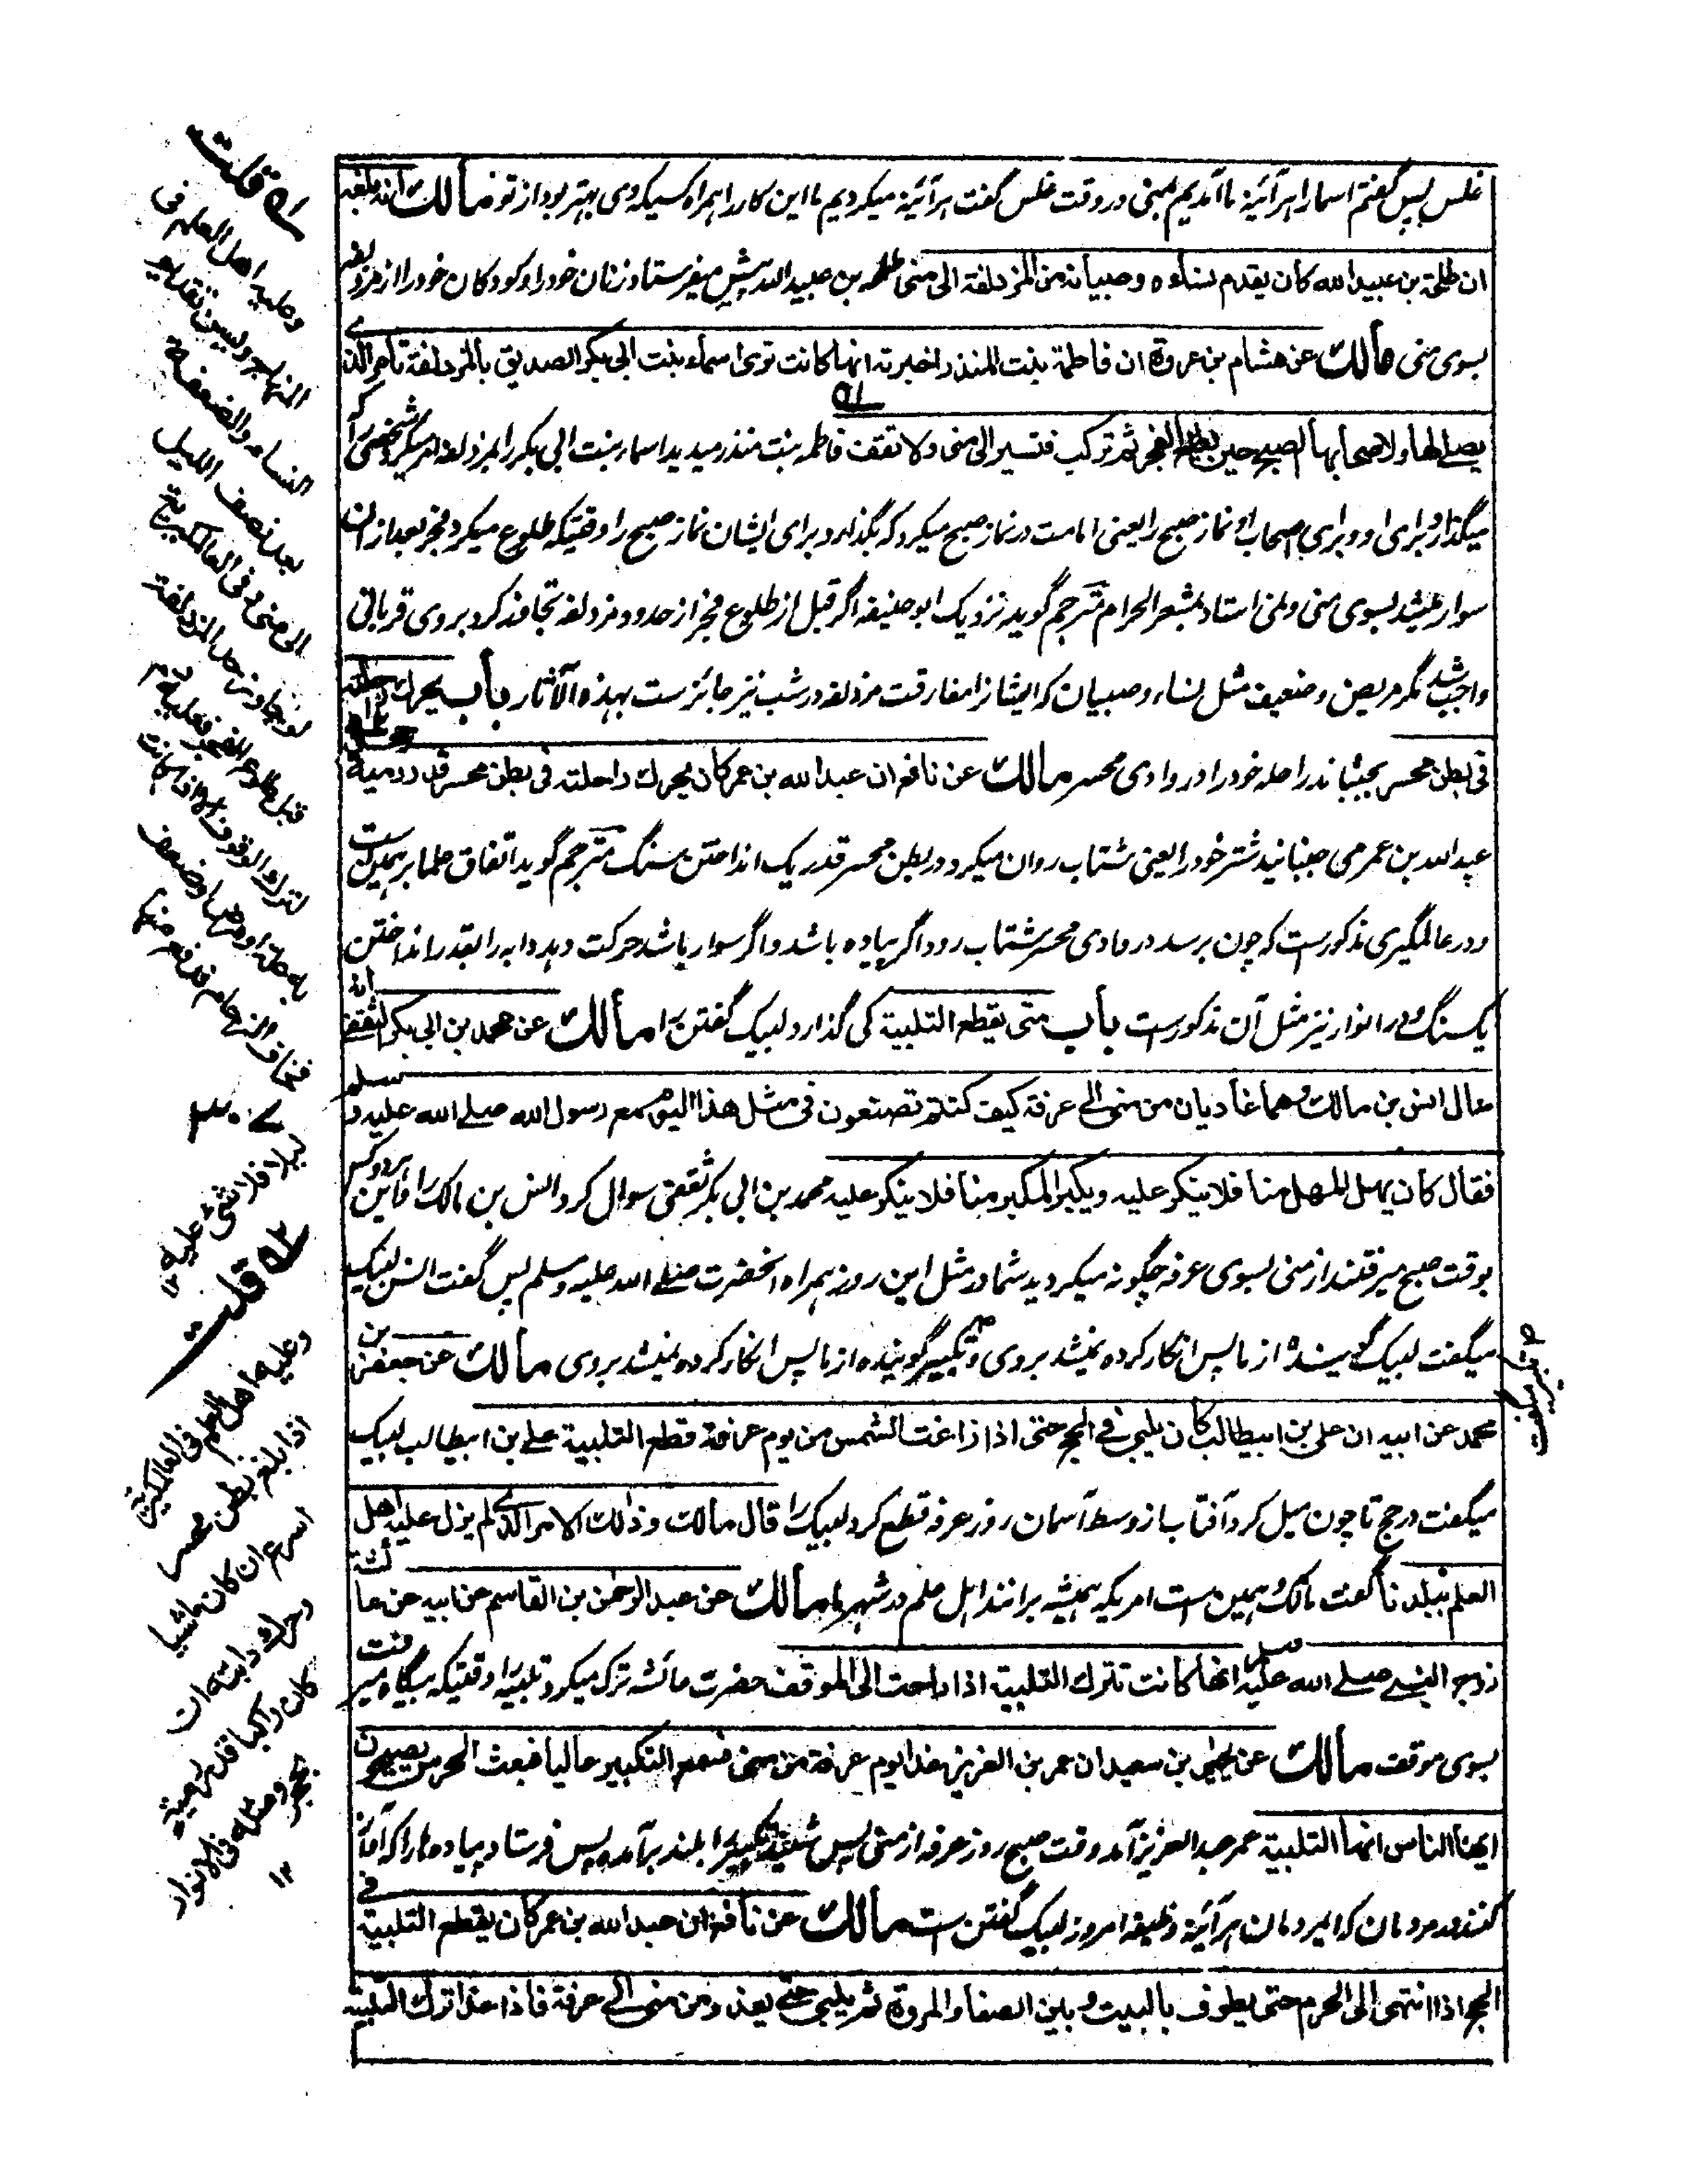 غلس پس گفتم اسما را هر آئینه ما آمدیم بمنی در وقت غلس گفت هر آئینه میکردیم ما این کار را همراه کسیکه وی بهتر بود از تو مالك انه بلغه
ان طلحة بن عبيد الله كان يقدم نساءه وصبيانه من المزدلفة الى منى طلحه بن عبید الله پیش میفرستاد زنان خود را و کودکان خود را از مزدلفه
بسوی منی مالك عن هشام بن عروة ان فاطمة بنت المنذر اخبرته انها كانت ترى اسماء بنت ابى بكر الصديق بالمزدلفة تامر الذى
يصلى لها ولاصحابها الصبح حين يطلع الفجر ثم تركب فتسير الى منى ولا تقف فاطمه بنت منذر میدید اسمار بنت ابی بکر را بمزدلفه امر میکرد شخصی را که
میگذارد برای او و برای اصحاب او نماز صبح را یعنی امامت در نماز صبح میکرد که بگذارد برای ایشان نماز صبح را وقتیکه طلوع میکرد فجر بعد ازان
سوار میشد بسوی منی و نمی استاد بمشعر الحرام مترجم گوید نزدیک ابو حنیفه اگر قبل از طلوع فجر از حدود مزدلفه تجاوز کرد بروی قربانی
واجب شد مگر مریض و ضعیف مثل نساء و صبیان که ایشانرا مفارقت مزدلفه در شب نیز جائزست بهذه الآثار باب يحرك راحلته
فى بطن محسر بجنباند راحله خود را در وادی محسر مالك عن نافع ان عبد الله بن عمر كان يحرك راحلته فى بطن محسر قدر رمية بحجر
عبد الله بن عمر می جنبانید شتر خود را یعنی شتاب روان میکرد در بطن محسر قدر یک انداختن سنگ مترجم گوید اتفاق علما بر همین ست
و در عالمگیری مذکورست که چون برسد در وادی محسر شتاب رود اگر پیاده باشد و اگر سوار باشد حرکت دهد دابه را بقدر انداختن
یکسنگ و در انوار نیز مثل آن مذکورست باب متى يقطع التلبية کی گذارد لبیک گفتن را مالك عن محمد بن ابى بكر الثقفى انه
سال انس بن مالك وهما غاديان من منى الى عرفة كيف كنتم تصنعون فى مثل هذا اليوم مع رسول الله صلے الله عليه وسلم
فقال كان يهل المهل منا فلا ينكر عليه ويكبر المكبر منا فلا ينكر عليه محمد بن ابی بکر ثقفی سوال کرد انس بن مالک را و این هر دو کس
بوقت صبح میرفتند از منی بسوی عرفه چگونه میکردید شما در مثل این روز همراه آنحضرت صلے الله علیه وسلم پس گفت انس لبیک
میگفت لبیک گوینده از ما پس انکار کرده نمیشد بروی و تکبیر گوینده از ما پس انکار کرده نمیشد بروی مالك عن جعفر بن
محمد عن ابيه ان على بن ابيطالب كان يلبى فى الحج حتى اذا زاغت الشمس من يوم عرفة قطع التلبية علے بن ابیطالب لبیک
میگفت در حج تا چون میل کرد آفتاب از وسط آسمان روز عرفه قطع کرد لبیک را قال مالك وذلك الامر الذى لم يزل عليه اهل
العلم ببلدنا گفت مالک و همین ست امریکه همیشه بر انند اهل علم در شهر ما مالك عن عبد الرحمن بن القاسم عن ابيه عن عائشة
زوج النبى صلے الله عليه وسلم انها كانت تترك التلبية اذا راحت الى الموقف حضرت عائشه ترک میکرد تلبیه را وقتیکه بیگاه میرفت
بسوی موقف مالك عن يحيى بن سعيد ان عمر بن العزيز غدا يوم عرفة من منى فسمع التكبير عاليا فبعث الحرس يصيحون
ايها الناس انها التلبية عمر عبد العزیز آمد وقت صبح روز عرفه از منی پس شنید تکبیر را بلند بر آمده پس فرستاد پیاده ها را که آواز
کنند در مردمان که ای مردمان هر آئینه وظیفه امروز لبیک گفتن ست مالك عن نافع ان عبد الله بن عمر كان يقطع التلبية فى
الحج اذا انتهى الى الحرم حتى يطوف بالبيت وبين الصفا والمروة ثم يلبى حتى يغدو من منى الى عرفة فاذا غدا ترك التلبية
۹۱ قلت
وعليه اهل العلم فى
المنهاج وليس تقديم
النساء والضعفة
بعد نصف الليل
الى منى وفى العالمگيرية
لو جاوز حد المزدلفة
قبل طلوع الفجر فعليه دم
لترك الوقوف الا اذا كانت
به علة او مرض او ضعف
فخاف الزحام فدفع منها
ليلا فلا شئ عليه ۱۲
۹۲ قلت
وعليه اهل العلم فى العالمگيرية
اذا بلغ بطن محسر
اسرع ان كان ماشيا
وحرك دابته ان
كان راكبا قدر رمية
بحجر ومثله فى الانوار
۱۲